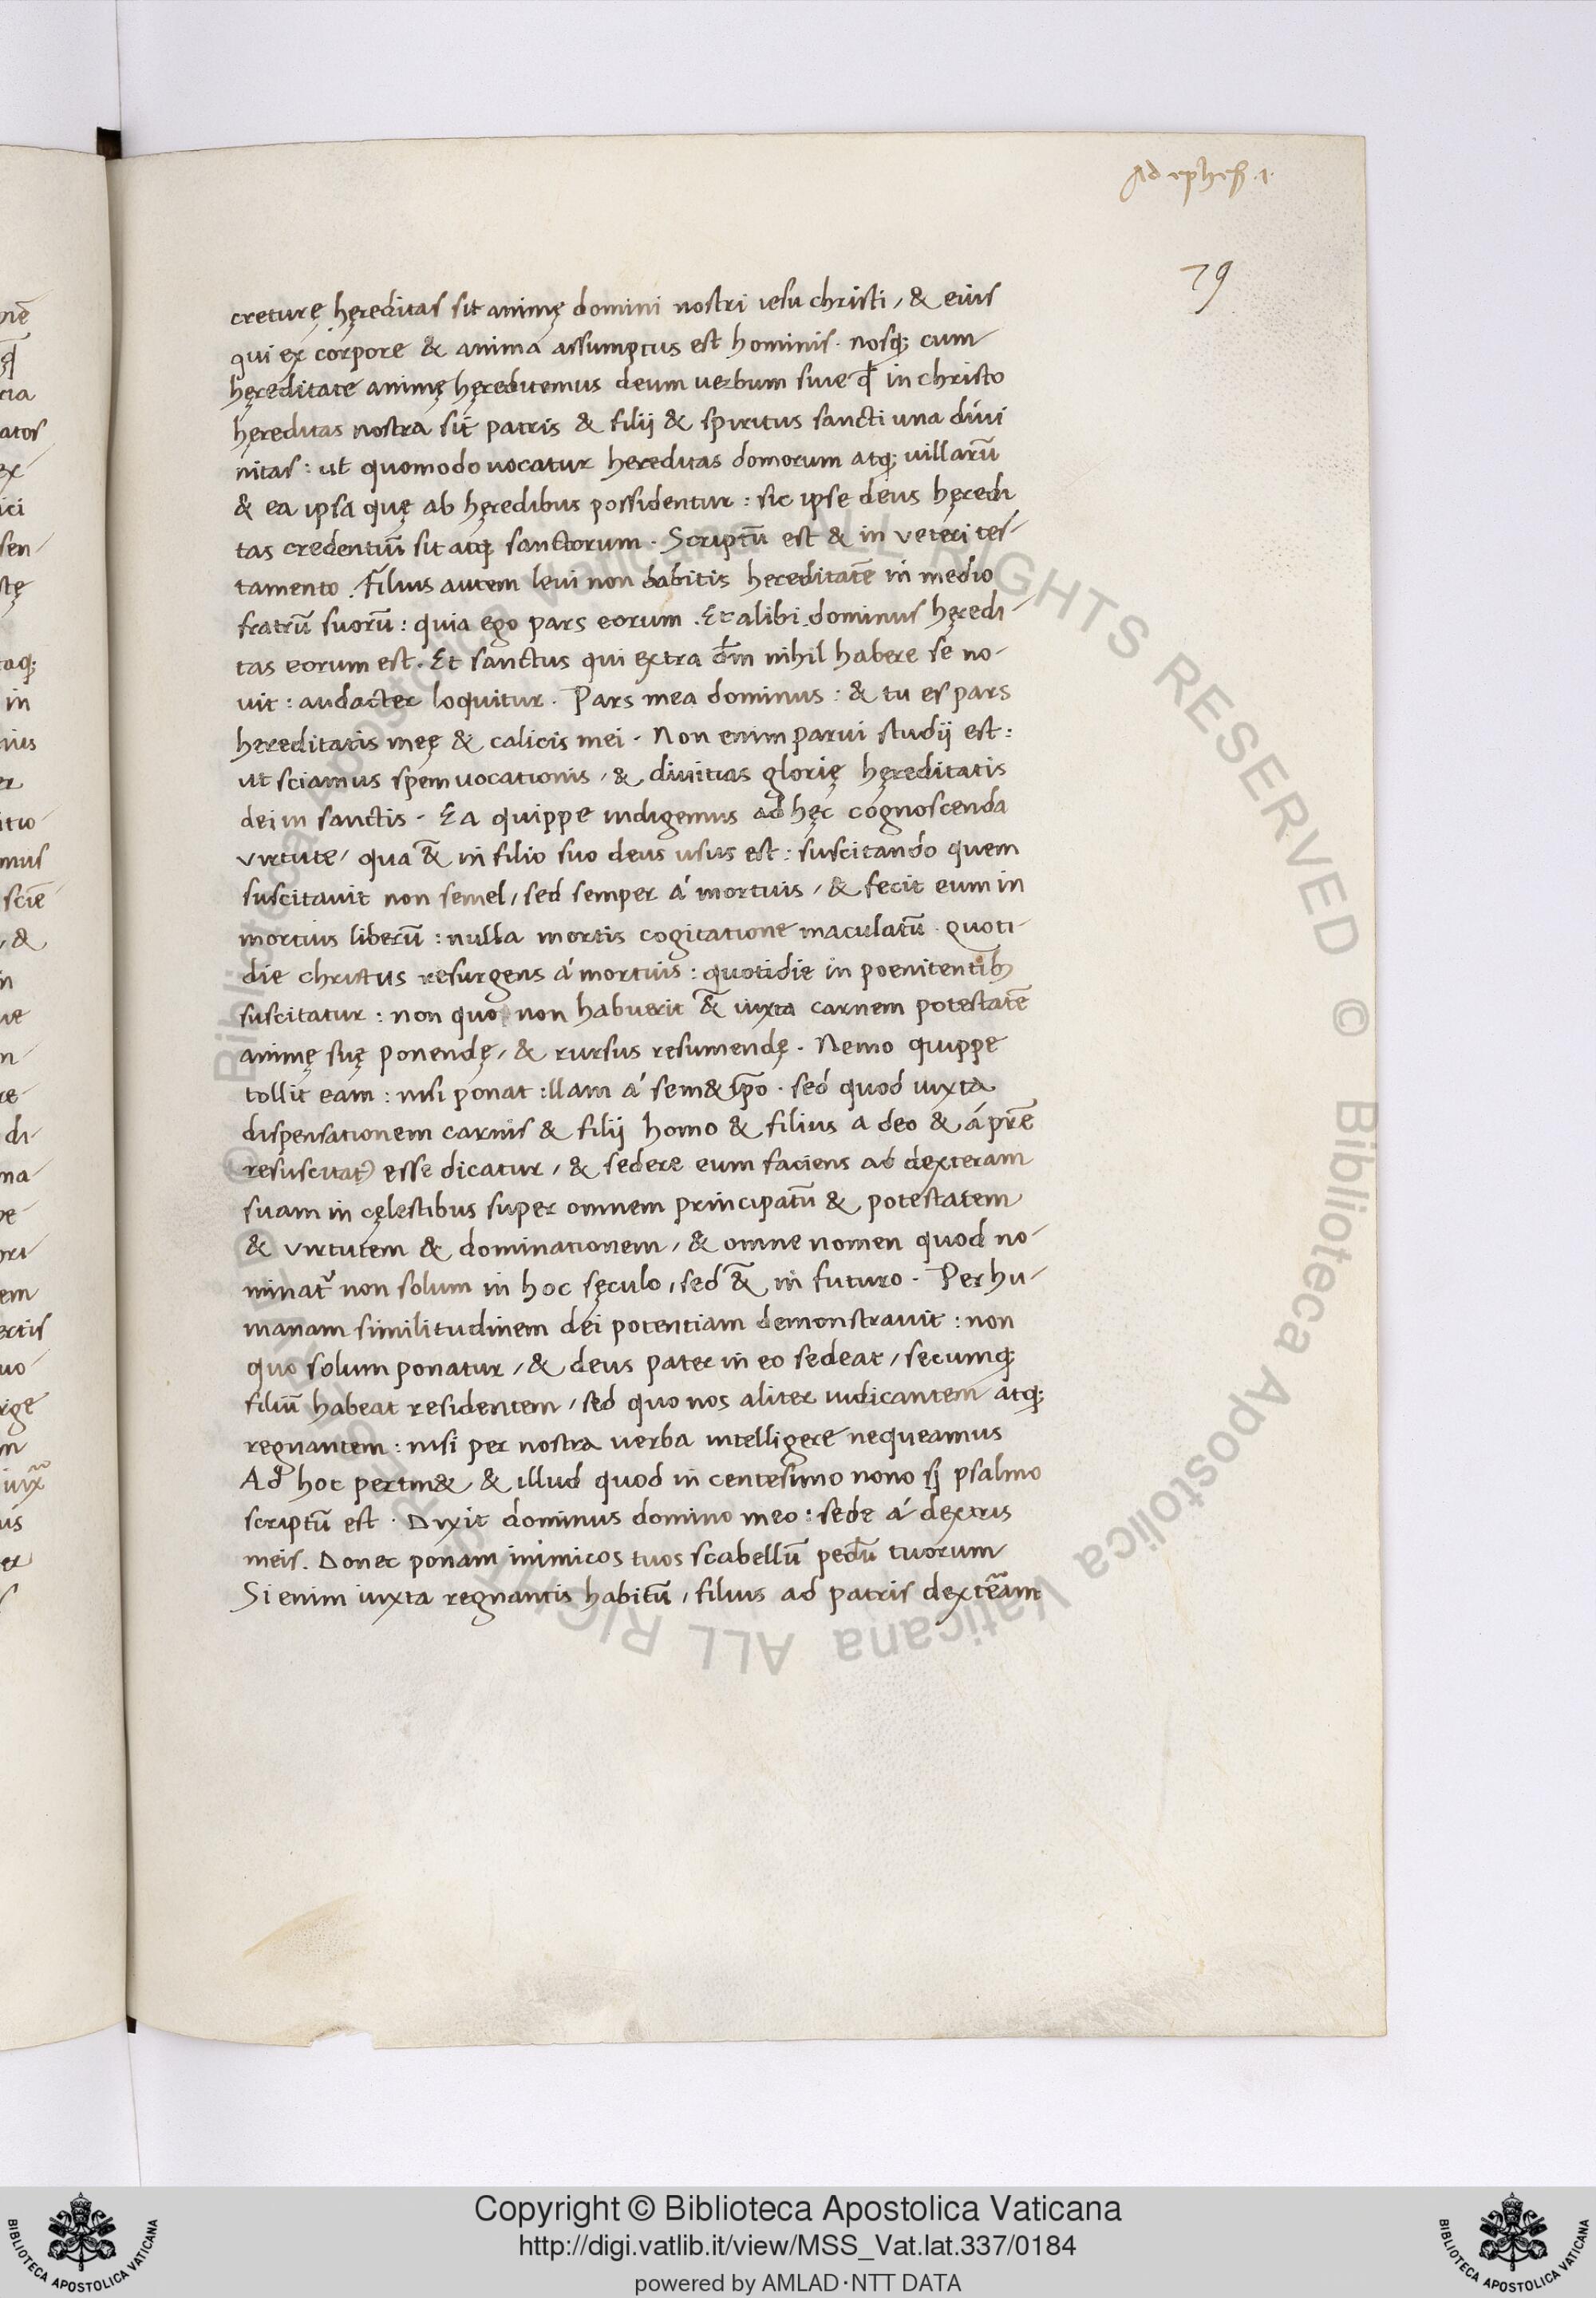 Ad ephes .1.
79
creturę hęreditas sit animę domini nostri iesu christi, & eius
qui ex corpore & anima assumptus est hominis. nosq; cum
hęreditate animę hęreditemus deum uerbum siue qđ in christo
hęreditas nostra sit patris & filij & spiritus sancti una diui
nitas: ut quomodo uocatur hereditas domorum atq; uillarū
& ea ipsa quę ab hęredibus possidentur: sic ipse deus hęredi
tas credentiū sit atq; sanctorum. Scriptū est & in veteri tes-
tamento. Filiis autem leui non dabitis hereditatē in medio
fratrū suorū: quia ego pars eorum. Et alibi. dominus hęredi-
tas eorum est. Et sanctus qui extra dm̄ nihil habere se no-
uit: audacter loquitur. Pars mea dominus: & tu es pars
hereditatis meę & calicis mei. Non enim parui studij est:
ut sciamus spem uocationis, & diuitias glorię hęreditatis
dei in sanctis. Ea quippe indigemus ad hęc cognoscenda
virtute, qua &̄ in filio suo deus usus est: suscitando quem
suscitauit non semel, sed semper á mortuis, & fecit eum in
mortuis liberū: nulla mortis cogitatione maculatū. quoti-
die christus resurgens á mortuis: quotidie in poenitentib;
suscitatur: non quo non habuerit &̄ iuxta carnem potestatē
animę suę ponendę, & rursus resumendę. Nemo quippe
tollit eam: nisi ponat illam á sem&ip̄o. sed quod iuxta
dispensationem carnis & filij homo & filius a deo & á pr̄e
resuscitat9 esse dicatur, & sedere eum faciens ad dexteram
suam in cęlestibus super omnem principatū & potestatem
& virtutem & dominationem, & omne nomen quod no-
minat᷑ non solum in hoc sęculo, sed &̄ in futuro. Per hu-
manam similitudinem dei potentiam demonstrauit: non
quo solum ponatur, & deus pater in eo sedeat, secumq;
filiū habeat residentem, sed quo nos aliter iudicantem atq;
regnantem: nisi per nostra uerba intelligere nequeamus
Ad hoc pertin& & illud quod in centesimo nono psalmo
scriptū est. Dixit dominus domino meo: sede á dextris
meis. Donec ponam inimicos tuos scabellū pedū tuorum
Si enim iuxta regnantis habitū, filius ad patris dextēam
© Biblioteca Apostolica Vaticana ALL RIGHTS RESERVED © Biblioteca Apostolica Vaticana ALL RIGHTS RESERVED
Copyright © Biblioteca Apostolica Vaticana
http://digi.vatlib.it/view/MSS_Vat.lat.337/0184
powered by AMLAD·NTT DATA
BIBLIOTECA APOSTOLICA VATICANA
BIBLIOTECA APOSTOLICA VATICANA